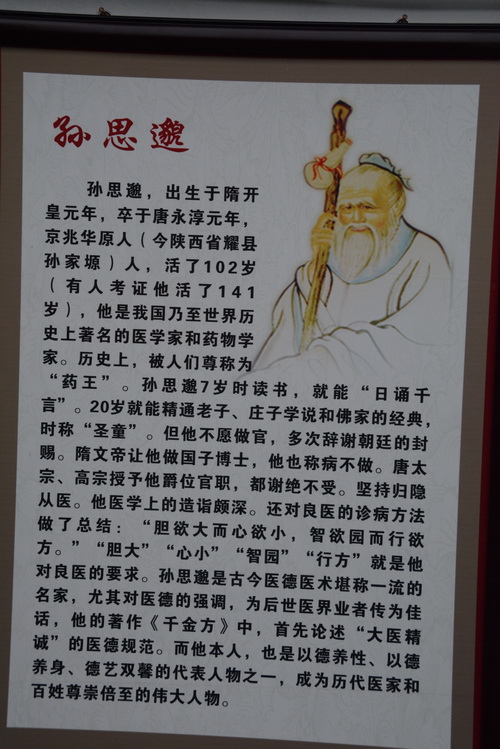 孙思邈
孙思邈，出生于隋开
皇元年，卒于唐永淳元年，
京兆华原人（今陕西省耀县
孙家塬）人，活了102岁
（有人考证他活了141
岁），他是我国乃至世界历
史上著名的医学家和药物学
家。历史上，被人们尊称为
“药王”。孙思邈7岁时读书，就能“日诵千
言”。20岁就能精通老子、庄子学说和佛家的经典，
时称“圣童”。但他不愿做官，多次辞谢朝廷的封
赐。隋文帝让他做国子博士，他也称病不做。唐太
宗、高宗授予他爵位官职，都谢绝不受。坚持归隐
从医。他医学上的造诣颇深。还对良医的诊病方法
做了总结：“胆欲大而心欲小，智欲园而行欲
方。”“胆大”“心小”“智园”“行方”就是他
对良医的要求。孙思邈是古今医德医术堪称一流的
名家，尤其对医德的强调，为后世医界业者传为佳
话，他的著作《千金方》中，首先论述“大医精
诚”的医德规范。而他本人，也是以德养性、以德
养身、德艺双馨的代表人物之一，成为历代医家和
百姓尊崇倍至的伟大人物。